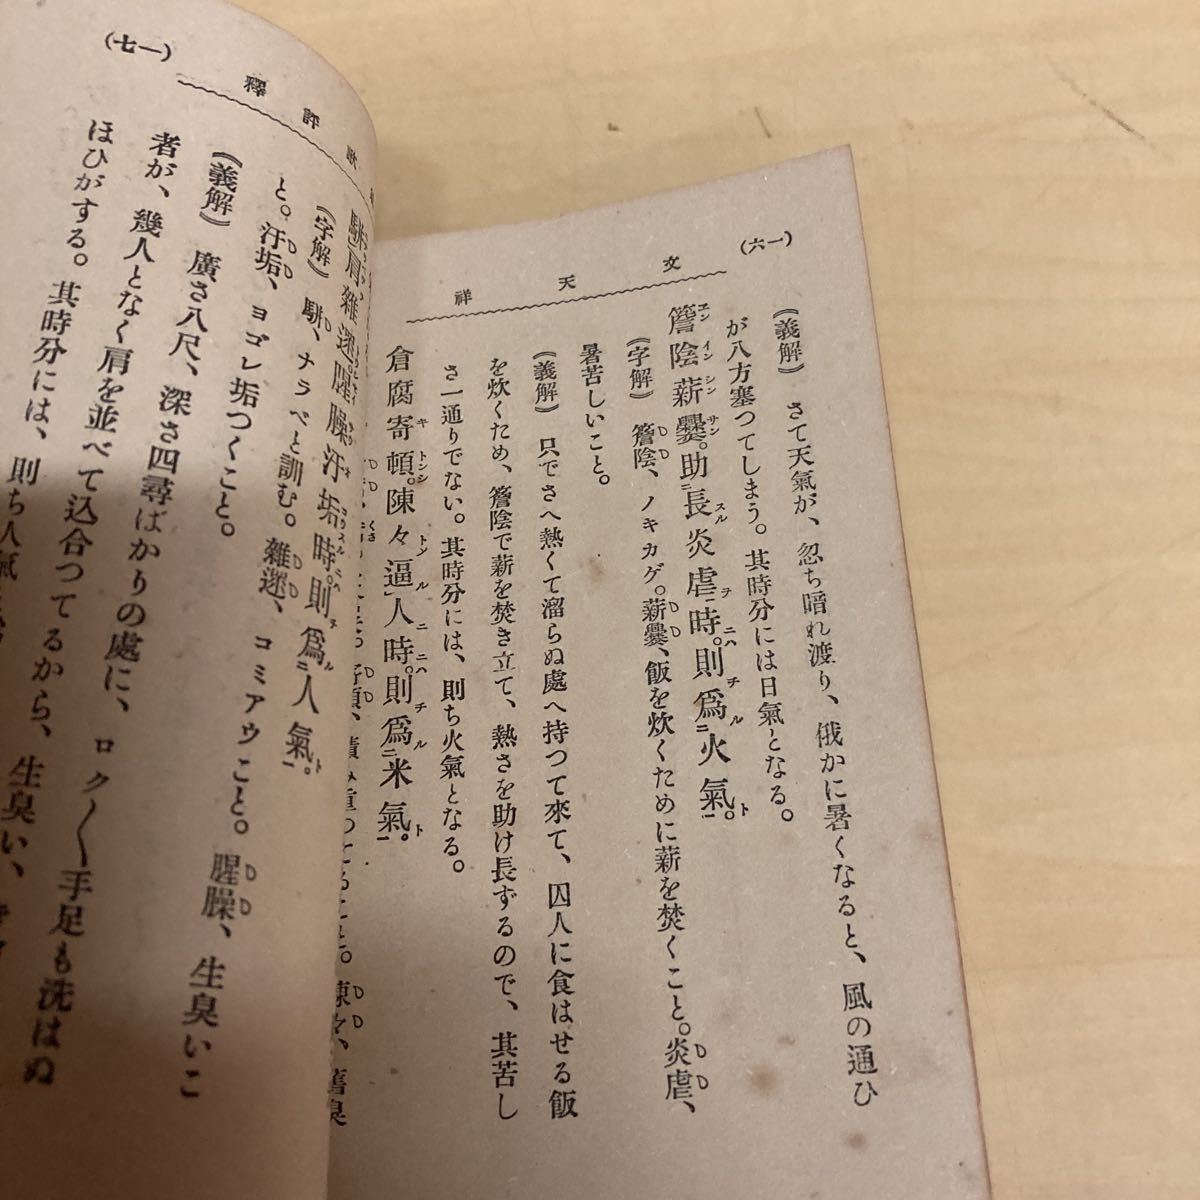 (一六)
文天祥
《義解》 さて天氣が、忽ち晴れ渡り、俄かに暑くなると、風の通ひ
が八方塞つてしまう。其時分には日氣となる。
簷陰薪爨。助長炎虐時。則爲火氣。
《字解》 簷陰、ノキカゲ。薪爨、飯を炊くために薪を焚くこと。炎虐、
暑苦しいこと。
《義解》 只でさへ熱くて溜らぬ處へ持つて來て、囚人に食はせる飯
を炊くため、簷陰で薪を焚き立て、熱さを助け長ずるので、其苦し
さ一通りでない。其時分には、則ち火氣となる。
倉腐寄頓。陳々逼人時。則爲米氣。
(一七)
評釋
駢肩雜遝。腥臊汗垢時。則爲人氣。
《字解》 駢、ナラベと訓む。雜遝、コミアウこと。腥臊、生臭いこ
と。汗垢、ヨゴレ垢つくこと。
《義解》 廣さ八尺、深さ四尋ばかりの處に、ロク〱手足も洗はぬ
者が、幾人となく肩を並べて込合つてるから、生臭い、
ほひがする。其時分には、則ち人氣